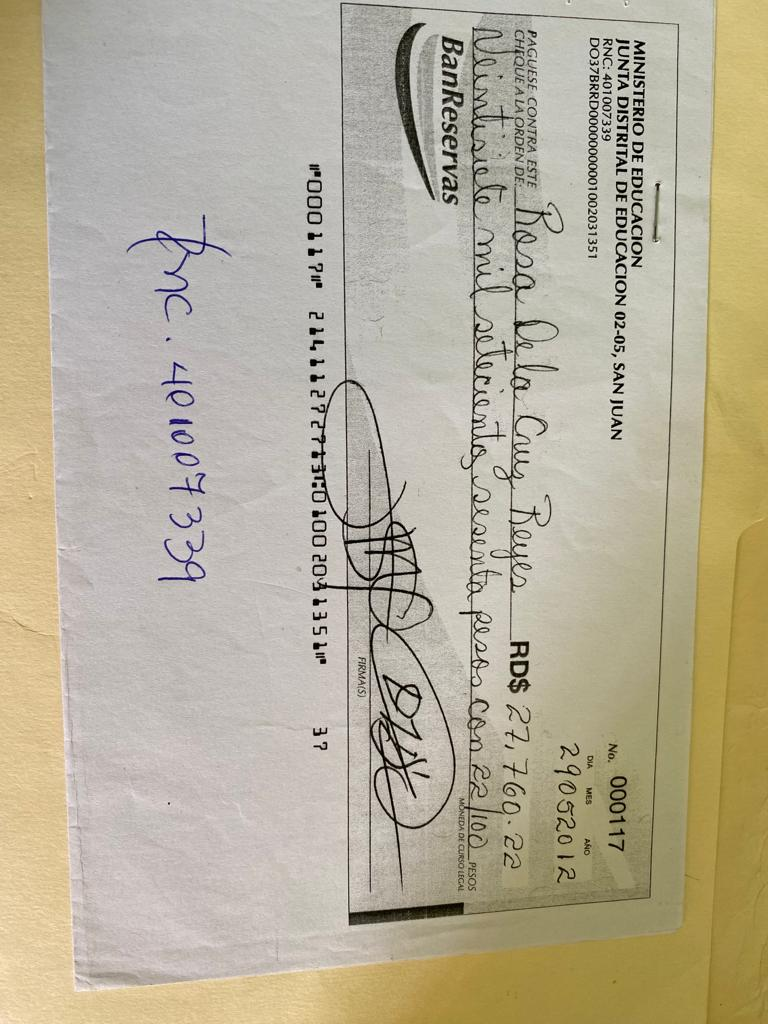 MINISTERIO DE EDUCACION
JUNTA DISTRITAL DE EDUCACION 02-05, SAN JUAN
RNC: 401007339
DO37BRRD00000000001002031351
No. 000117
DIA MES AÑO
29052012
PAGUESE CONTRA ESTE
CHEQUE A LA ORDEN DE: Rosa De la Cruz Reyes RD$ 27,760.22
Veintisiete mil setecientos sesenta pesos con 22/100 PESOS
MONEDA DE CURSO LEGAL
BanReservas
FIRMA(S)
⑈000117⑈ 214112727131:01002031351⑈ 37
Rnc. 401007339